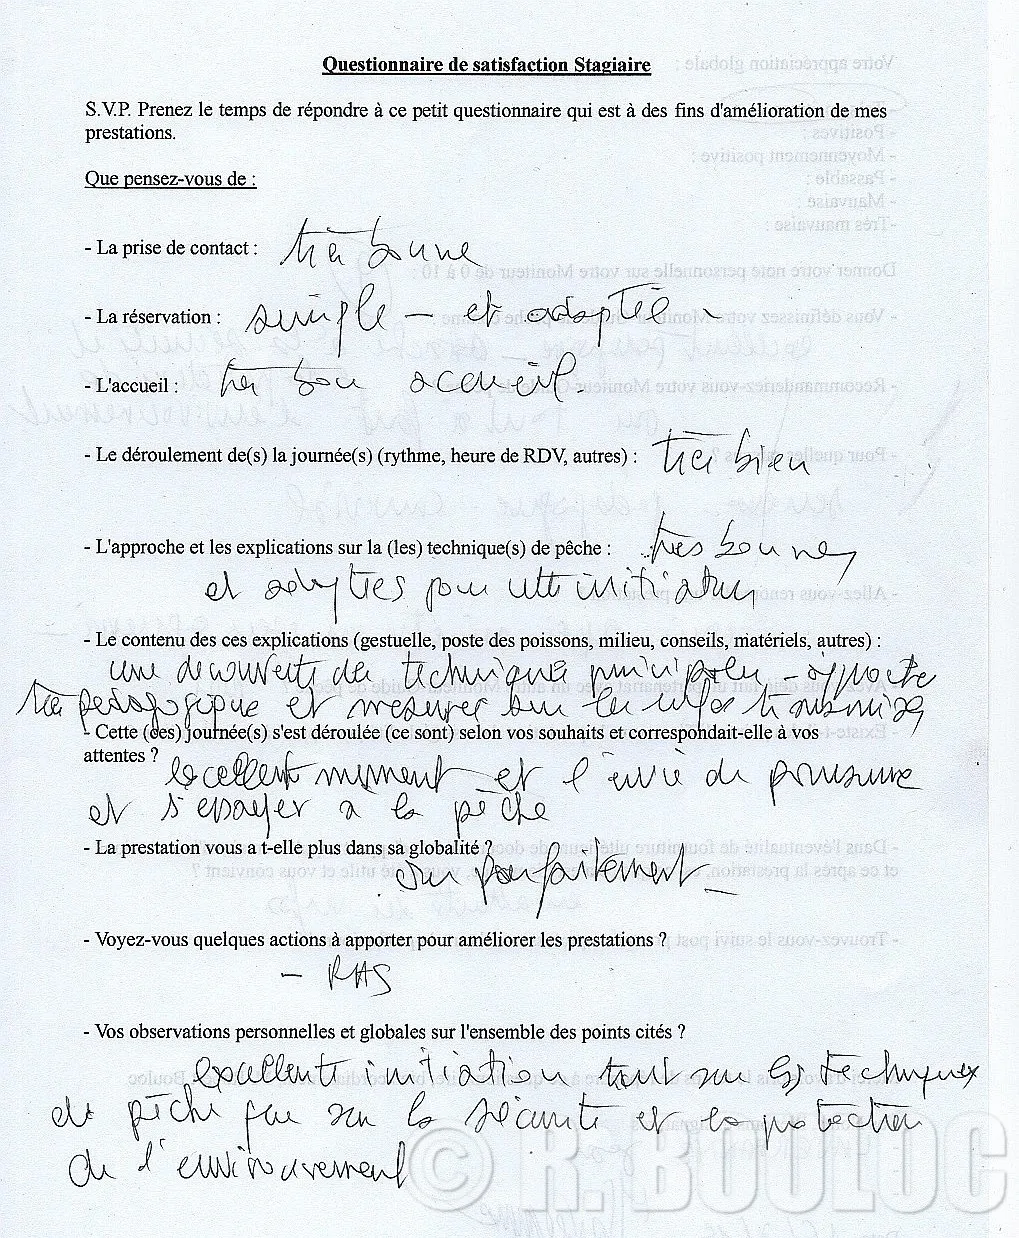 Questionnaire de satisfaction Stagiaire
S.V.P. Prenez le temps de répondre à ce petit questionnaire qui est à des fins d'amélioration de mes
prestations.
Que pensez-vous de :
- La prise de contact : très bonne
- La réservation : simple - et adaptée -
- L'accueil : très bon accueil.
- Le déroulement de(s) la journée(s) (rythme, heure de RDV, autres) : très bien
- L'approche et les explications sur la (les) technique(s) de pêche : très bonnes
et adaptées pour cette initiation
- Le contenu des ces explications (gestuelle, poste des poissons, milieu, conseils, matériels, autres) :
une découverte des techniques principales - approche
très pédagogique et mesures sur les infos transmises
- Cette (des) journée(s) s'est déroulée (ce sont) selon vos souhaits et correspondait-elle à vos
attentes ?
excellent moment et l'envie de poursuivre
et s'essayer à la pêche
- La prestation vous a t-elle plus dans sa globalité ?
oui parfaitement -
- Voyez-vous quelques actions à apporter pour améliorer les prestations ?
- RAS
- Vos observations personnelles et globales sur l'ensemble des points cités ?
excellente initiation tant sur les techniques
de pêche que sur la sécurité et la protection
de l'environnement
© R. BOULOC